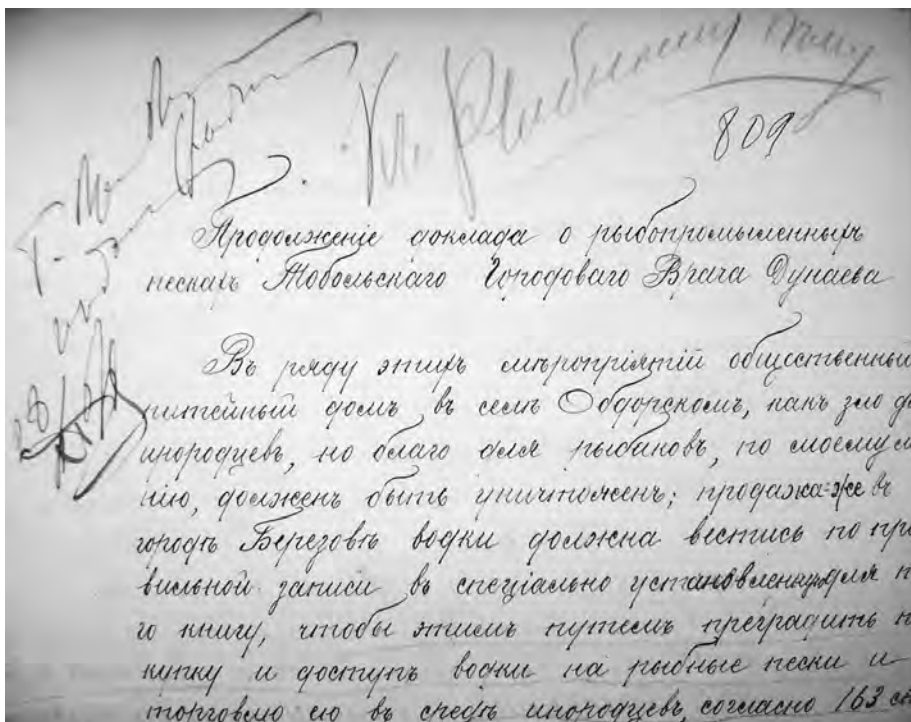 Къ Рыбному
809
Продолженіе доклада о рыбопромышленныхъ
пескахъ Тобольскаго Городоваго Врача Дунаева
Въ ряду этихъ мѣропріятій общественный
питейный домъ въ селѣ Обдорскомъ, какъ зло д
инородцевъ, но благо для рыбаковъ, по моему м
нію, долженъ быть уничтоженъ; продажа-же въ
городѣ Березовѣ водки должна вестись по пра
вильной записи въ спеціально установленную для
го книгу, чтобы этимъ путемъ преградить п
купку и доступъ водки на рыбные пески и
торговлю ею въ средѣ инородцевъ, согласно 163 с